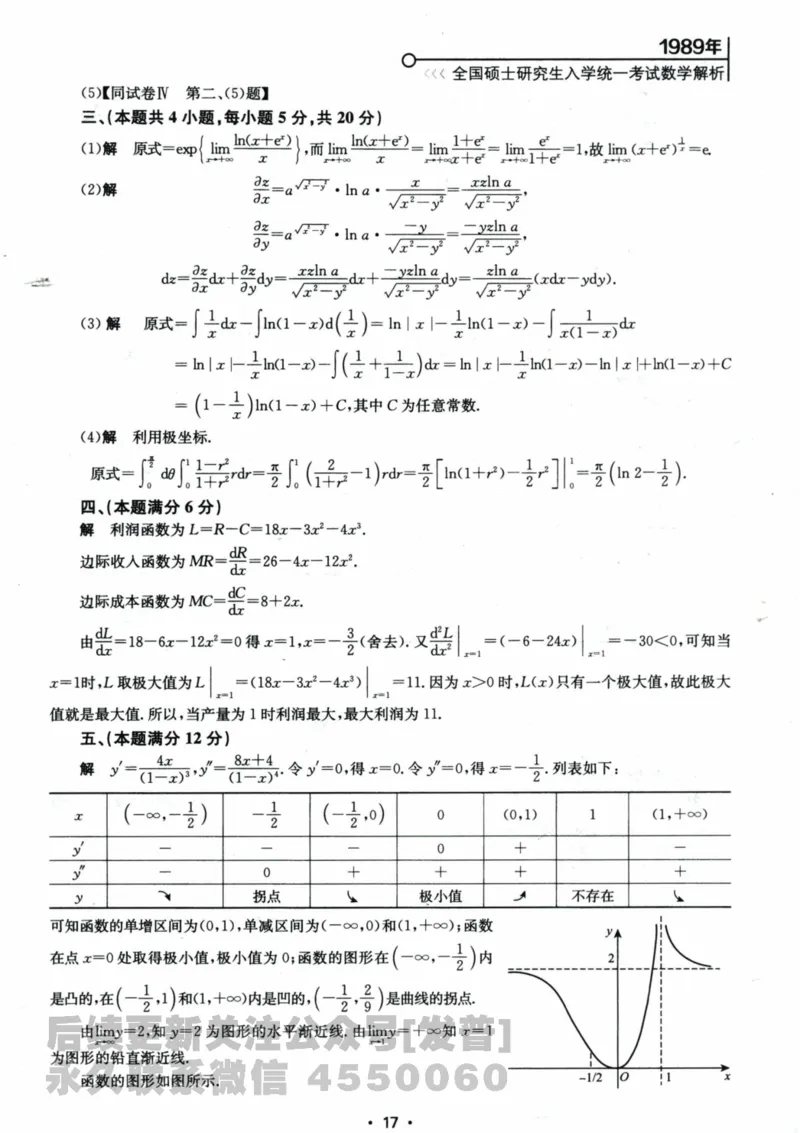 1989年
<<< 全国硕士研究生入学统一考试数学解析
(5)【同试卷Ⅳ 第二、(5)题】
三、(本题共 4 小题,每小题 5 分,共 20 分)
(1)解 原式=exp{lim_{x→+∞} ln(x+e^x)/x},而 lim_{x→+∞} ln(x+e^x)/x = lim_{x→+∞} (1+e^x)/(x+e^x) = lim_{x→+∞} e^x/(1+e^x) =1,故 lim_{x→+∞} (x+e^x)^{1/x}=e.
(2)解 ∂z/∂x=a^{√(x²−y²)}·ln a·x/√(x²−y²)=xzln a/√(x²−y²),
∂z/∂y=a^{√(x²−y²)}·ln a·(−y)/√(x²−y²)=−yzln a/√(x²−y²),
dz=∂z/∂x dx+∂z/∂y dy=xzln a/√(x²−y²) dx+(−yzln a)/√(x²−y²) dy=zln a/√(x²−y²) (xdx−ydy).
(3)解 原式=∫1/x dx−∫ln(1−x)d(1/x)=ln|x|−1/x ln(1−x)−∫1/(x(1−x)) dx
=ln|x|−1/x ln(1−x)−∫(1/x+1/(1−x))dx=ln|x|−1/x ln(1−x)−ln|x|+ln(1−x)+C
=(1−1/x)ln(1−x)+C,其中 C 为任意常数.
(4)解 利用极坐标.
原式=∫_0^{π/2} dθ∫_0^1 (1−r²)/(1+r²) rdr=π/2 ∫_0^1 (2/(1+r²)−1)rdr=π/2 [ln(1+r²)−1/2 r²]|_0^1=π/2 (ln 2−1/2).
四、(本题满分 6 分)
解 利润函数为 L=R−C=18x−3x²−4x³.
边际收入函数为 MR=dR/dx=26−4x−12x².
边际成本函数为 MC=dC/dx=8+2x.
由 dL/dx=18−6x−12x²=0 得 x=1,x=−3/2(舍去).又 d²L/dx²|_{x=1}=(−6−24x)|_{x=1}=−30<0,可知当
x=1时,L 取极大值为 L|_{x=1}=(18x−3x²−4x³)|_{x=1}=11.因为 x>0 时,L(x)只有一个极大值,故此极大
值就是最大值.所以,当产量为 1 时利润最大,最大利润为 11.
五、(本题满分 12 分)
解 y′=4x/(1−x)³,y″=(8x+4)/(1−x)⁴.令 y′=0,得 x=0.令 y″=0,得 x=−1/2.列表如下:
x (−∞,−1/2) −1/2 (−1/2,0) 0 (0,1) 1 (1,+∞)
y′ − − − 0 + −
y″ − 0 + + + +
y 拐点 极小值 不存在
可知函数的单增区间为(0,1),单减区间为(−∞,0)和(1,+∞);函数
在点 x=0 处取得极小值,极小值为 0;函数的图形在(−∞,−1/2)内
是凸的,在(−1/2,1)和(1,+∞)内是凹的,(−1/2,2/9)是曲线的拐点.
由 lim_{x→∞} y=2,知 y=2 为图形的水平渐近线.由 lim_{x→1} y=+∞知 x=1
为图形的铅直渐近线.
函数的图形如图所示.
y
2
−1/2 O 1 x
后续更新关注公众号[发普]
永久联系微信 4550060
· 17 ·